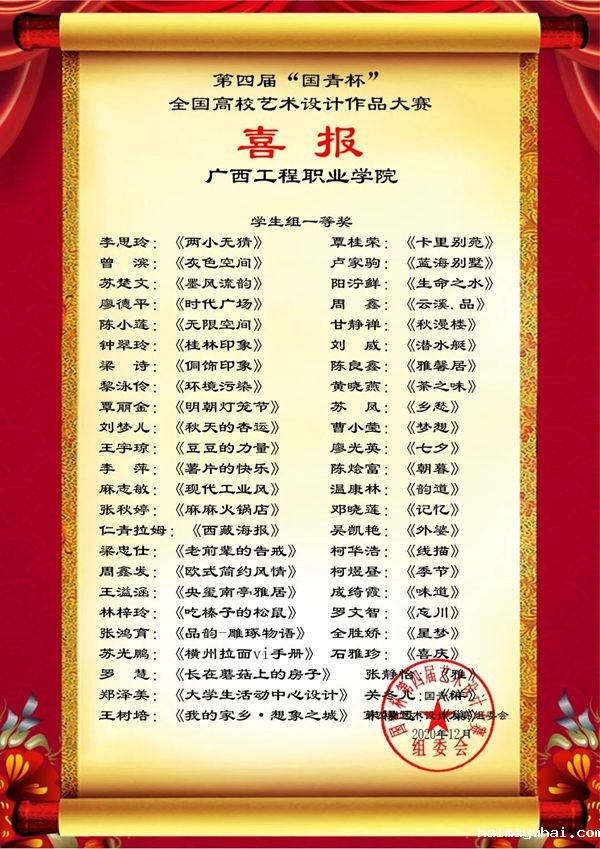 第四届“国青杯”
全国高校艺术设计作品大赛
喜报
广西工程职业学院
学生组一等奖
李思玲：《两小无猜》 覃桂荣：《卡里别苑》
曾 滨：《灰色空间》 卢家驹：《蓝海别墅》
苏楚文：《墨风流韵》 阳泞鲜：《生命之水》
廖德平：《时代广场》 周 鑫：《云溪.品》
陈小莲：《无限空间》 甘静禅：《秋漫楼》
钟翠玲：《桂林印象》 刘 威：《潜水艇》
梁 诗：《侗饰印象》 陈良鑫：《雅馨居》
黎泳伶：《环境污染》 黄晓燕：《茶之味》
覃丽金：《明朝灯笼节》 苏 凤：《乡愁》
刘梦儿：《秋天的杏运》 曹小莹：《梦想》
王宇琼：《豆豆的力量》 廖光英：《七夕》
李 萍：《薯片的快乐》 陈烩富：《朝暮》
麻志敏：《现代工业风》 温康林：《韵道》
张秋婷：《麻麻火锅店》 邓晓莲：《记忆》
仁青拉姆：《西藏海报》 吴凯艳：《外婆》
梁忠仕：《老前辈的告戒》 柯华浩：《线描》
周鑫发：《欧式简约风情》 柯煜昼：《季节》
王溢涵：《央玺南亭雅居》 成绮霞：《味道》
林梓玲：《吃榛子的松鼠》 罗文智：《忘川》
张鸿育：《品韵-雕琢物语》 全胜娇：《星梦》
苏光鹏：《横州拉面vi手册》 石雅珍：《喜庆》
罗 慧：《长在蘑菇上的房子》 张静怡：《雅》
郑泽美：《大学生活动中心设计》
王树培：《我的家乡·想象之城》
2020年12月
组委会
haimaguhai.com